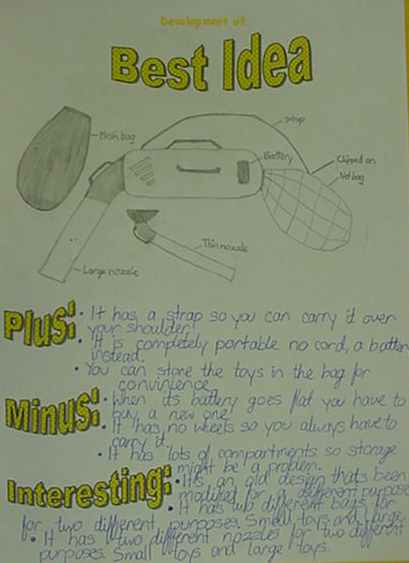 Development of
Best Idea
Mesh bag
strap
Battery
Clipped on
Net bag
Thin nozzle
Large nozzle
Plus:
• It has a strap so you can carry it over
your shoulder!
• It is completely portable no cord, a battery
instead.
• You can store the toys in the bag for
convinience.
Minus:
• When its battery goes flat you have to
buy a new one!
• It has no wheels so you always have to
carry it.
• It has lots of compartments so storage
might be a problem.
Interesting:
• It's an old design that's been
modified for a different purpose
• It has two different bags for
for two different purposes. Small toys and large.
• It has two different nozzles for two different
purposes. Small toys and large toys.